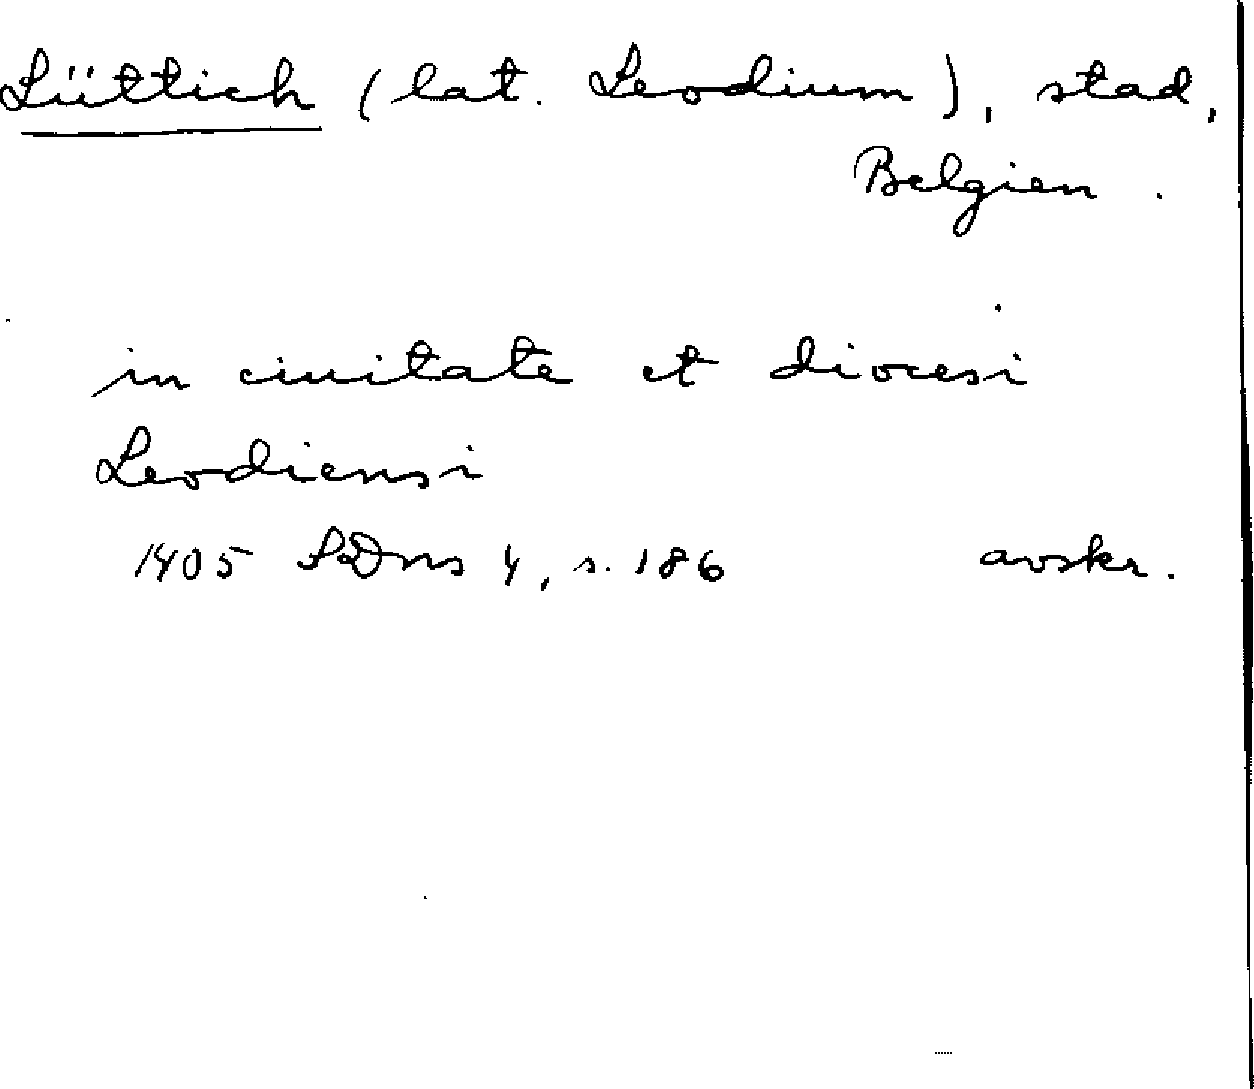 Lüttich (lat. Leodium), stad,
Belgien.
in ciuitate et diocesi
Leodiensi
1405 SDns 4, s. 186 avskr.